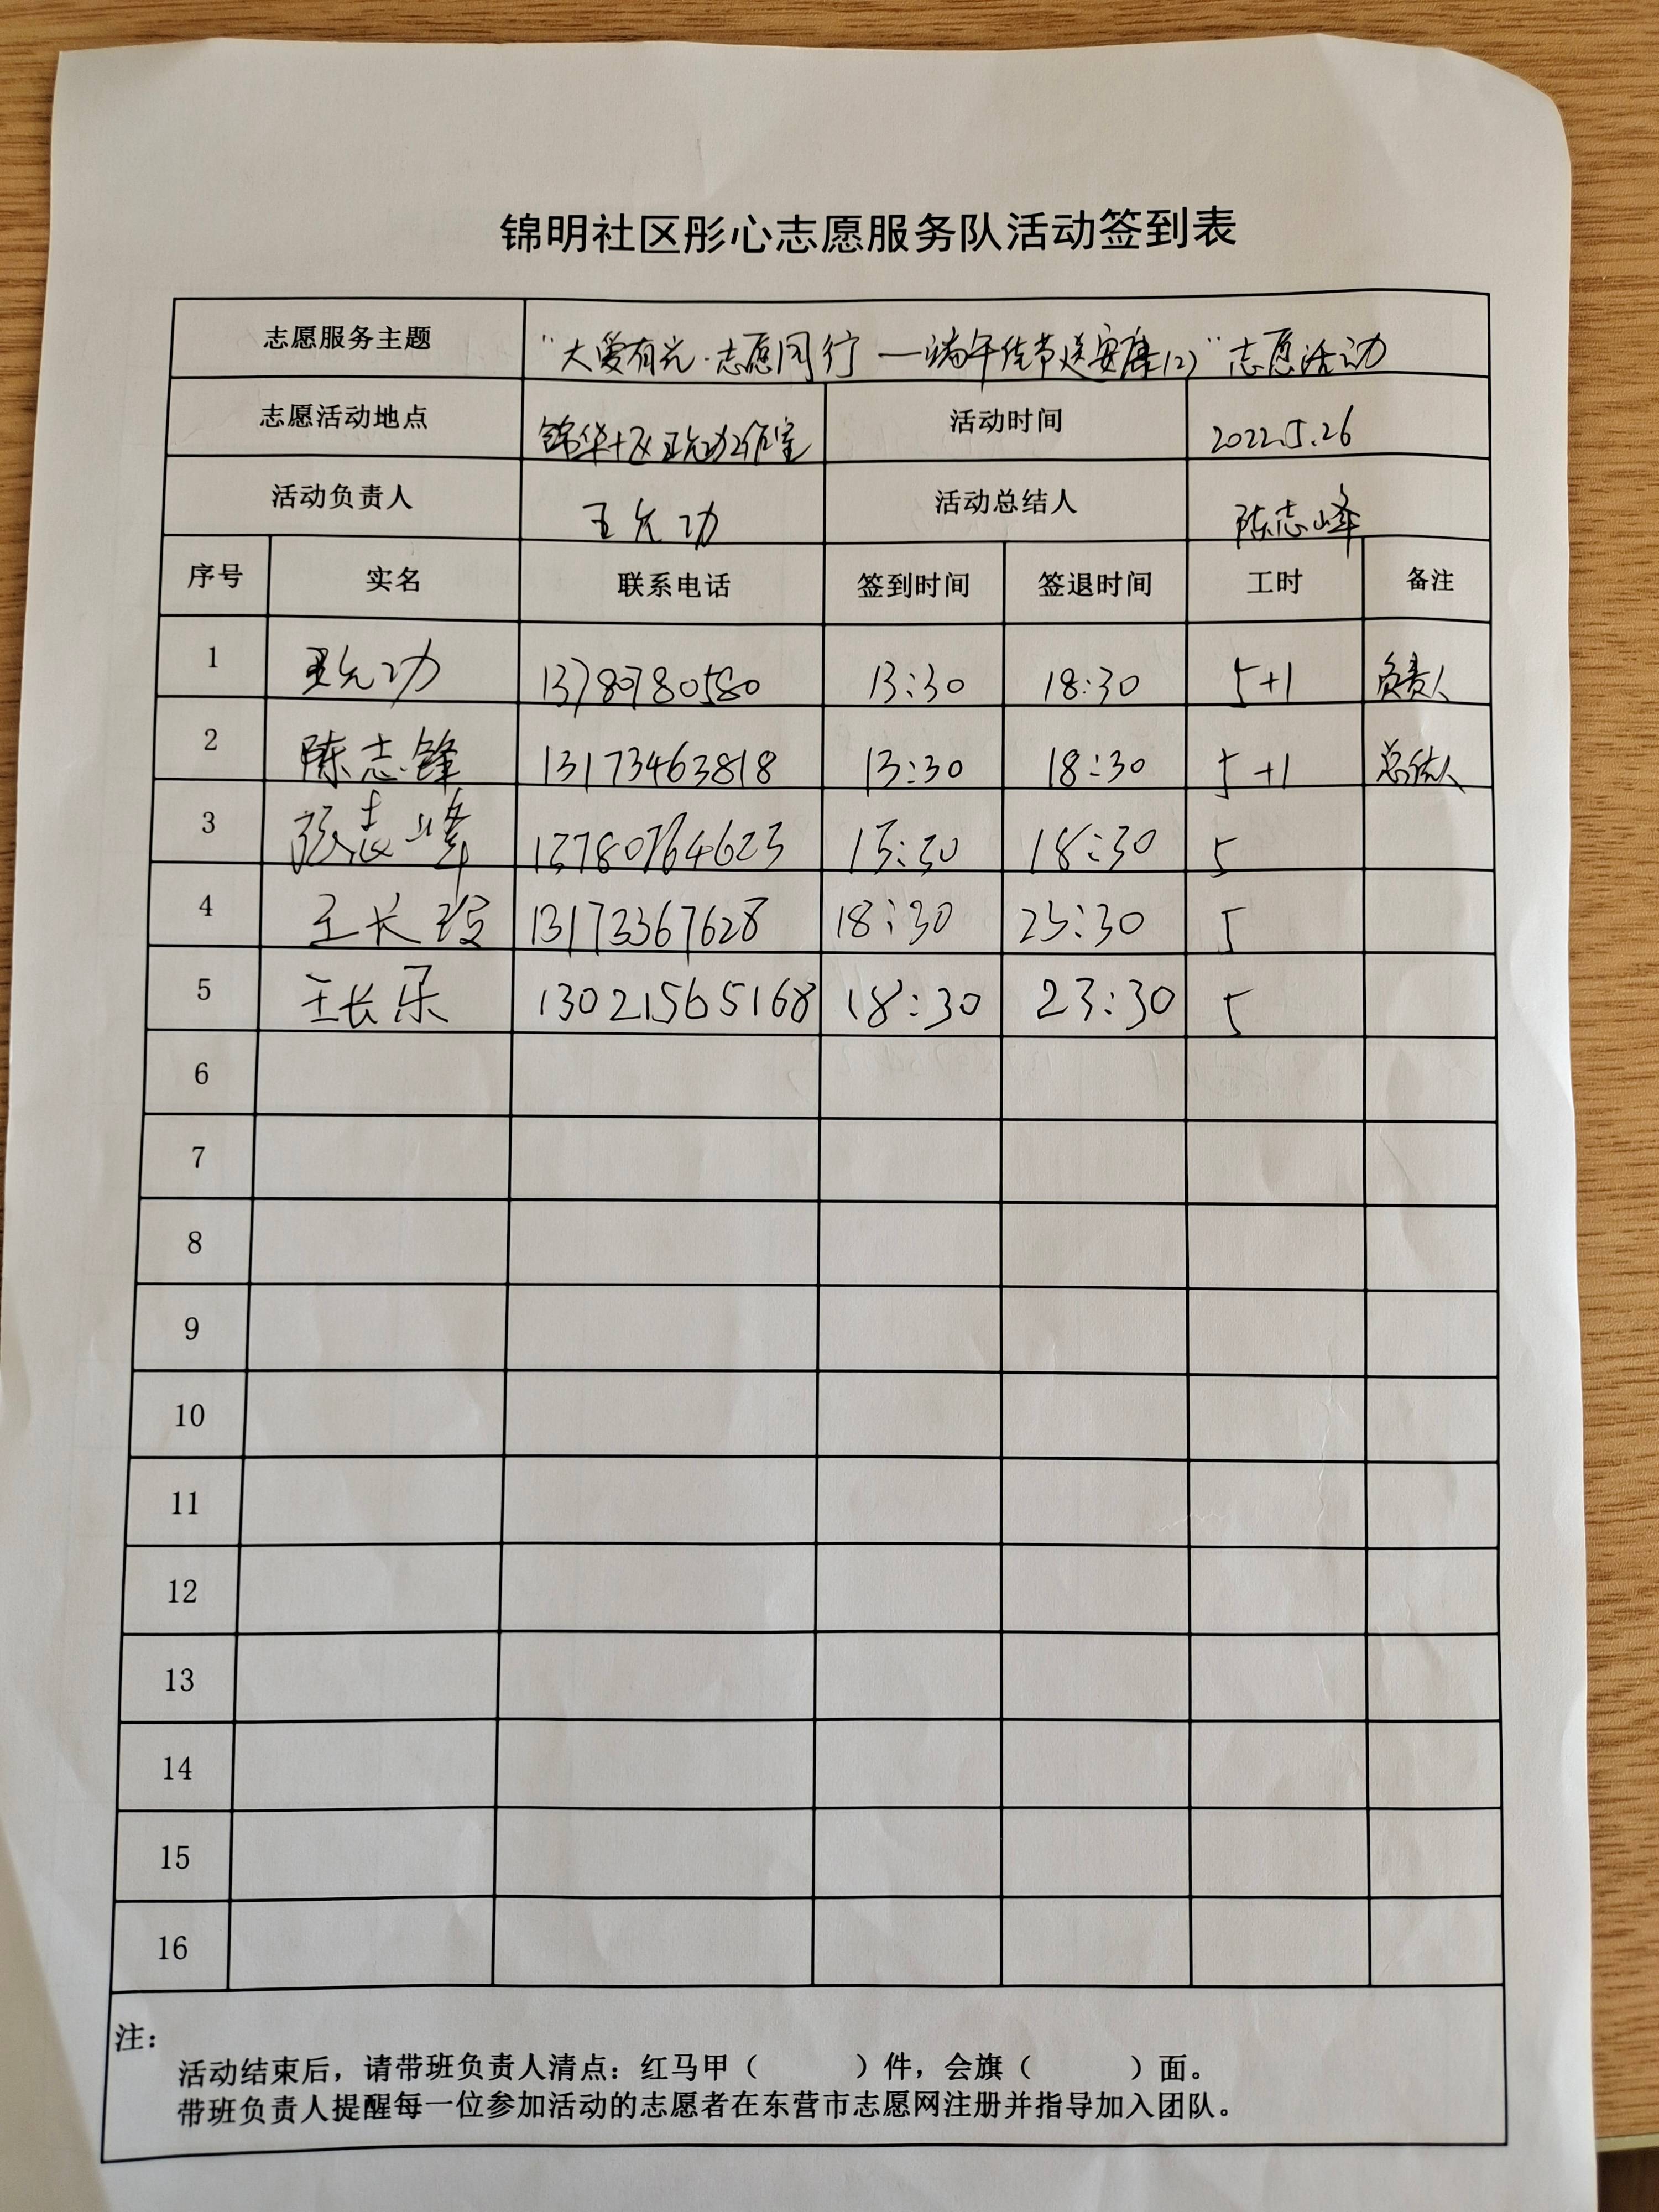 锦明社区彤心志愿服务队活动签到表
志愿服务主题 "大爱有光·志愿同行 —端午佳节送安康(2)" 志愿活动
志愿活动地点 锦华十区王允功工作室 活动时间 2022.5.26
活动负责人 王允功 活动总结人 陈志峰
序号 实名 联系电话 签到时间 签退时间 工时 备注
1 王允功 13789780580 13:30 18:30 5+1 负责人
2 陈志锋 13173463818 13:30 18:30 5+1 总结人
3 张志峰 13780764623 13:30 18:30 5
4 王长 13173367628 18:30 23:30 5
5 王长乐 13021565168 18:30 23:30 5
6
7
8
9
10
11
12
13
14
15
16
注：
活动结束后，请带班负责人清点：红马甲（ ）件，会旗（ ）面。
带班负责人提醒每一位参加活动的志愿者在东营市志愿网注册并指导加入团队。